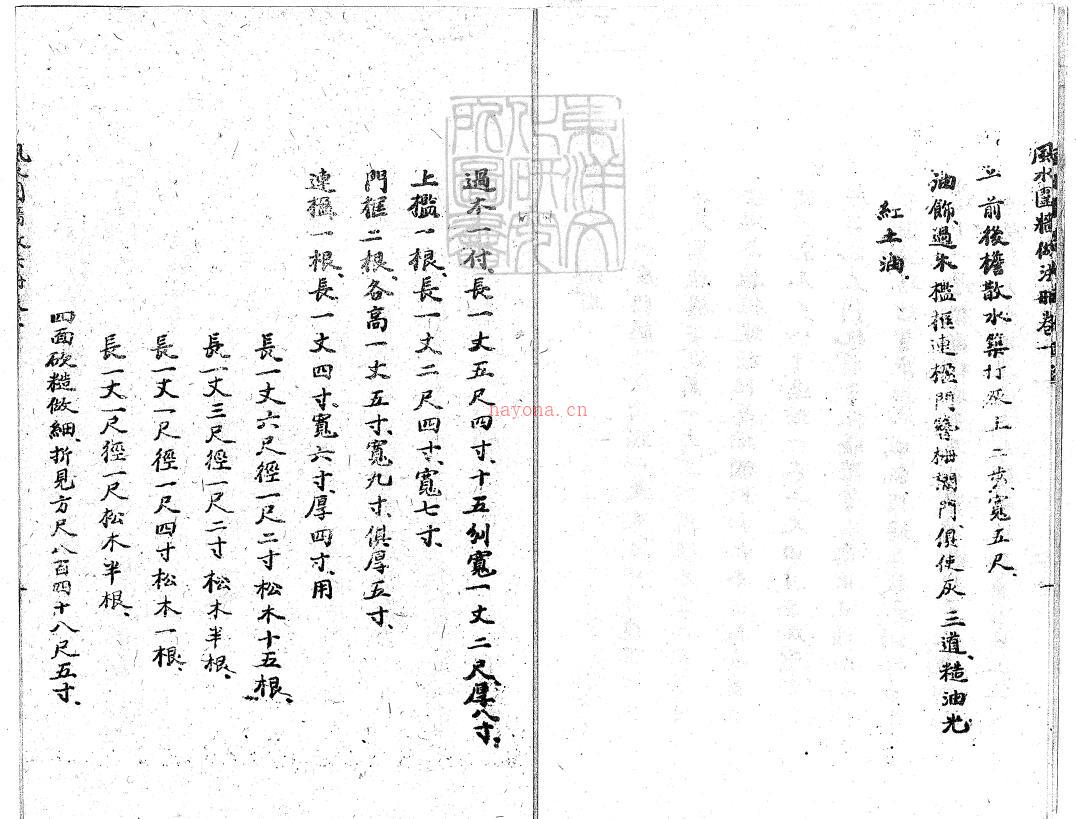 風水圍牆做法冊卷一
前後檐散水築打灰土二步寬五尺、
油飾、過木檻框連楹門簪柵欄門、俱使灰三道、糙油光
紅土油、
東洋文化研究所圖書
過木一付、長一丈五尺四寸、十五列、寬一丈二尺、厚八寸、
上檻一根、長一丈二尺四寸、寬七寸、
門框二根、各高一丈五寸、寬九寸、俱厚五寸、
連楹一根、長一丈四寸、寬六寸、厚四寸、用
長一丈六尺徑一尺二寸松木十五根、
長一丈三尺徑一尺二寸松木半根、
長一丈一尺徑一尺四寸松木一根、
長一丈一尺徑一尺松木半根、
四面砍糙做細、折見方尺八百四十八尺五寸、
hayona.cn